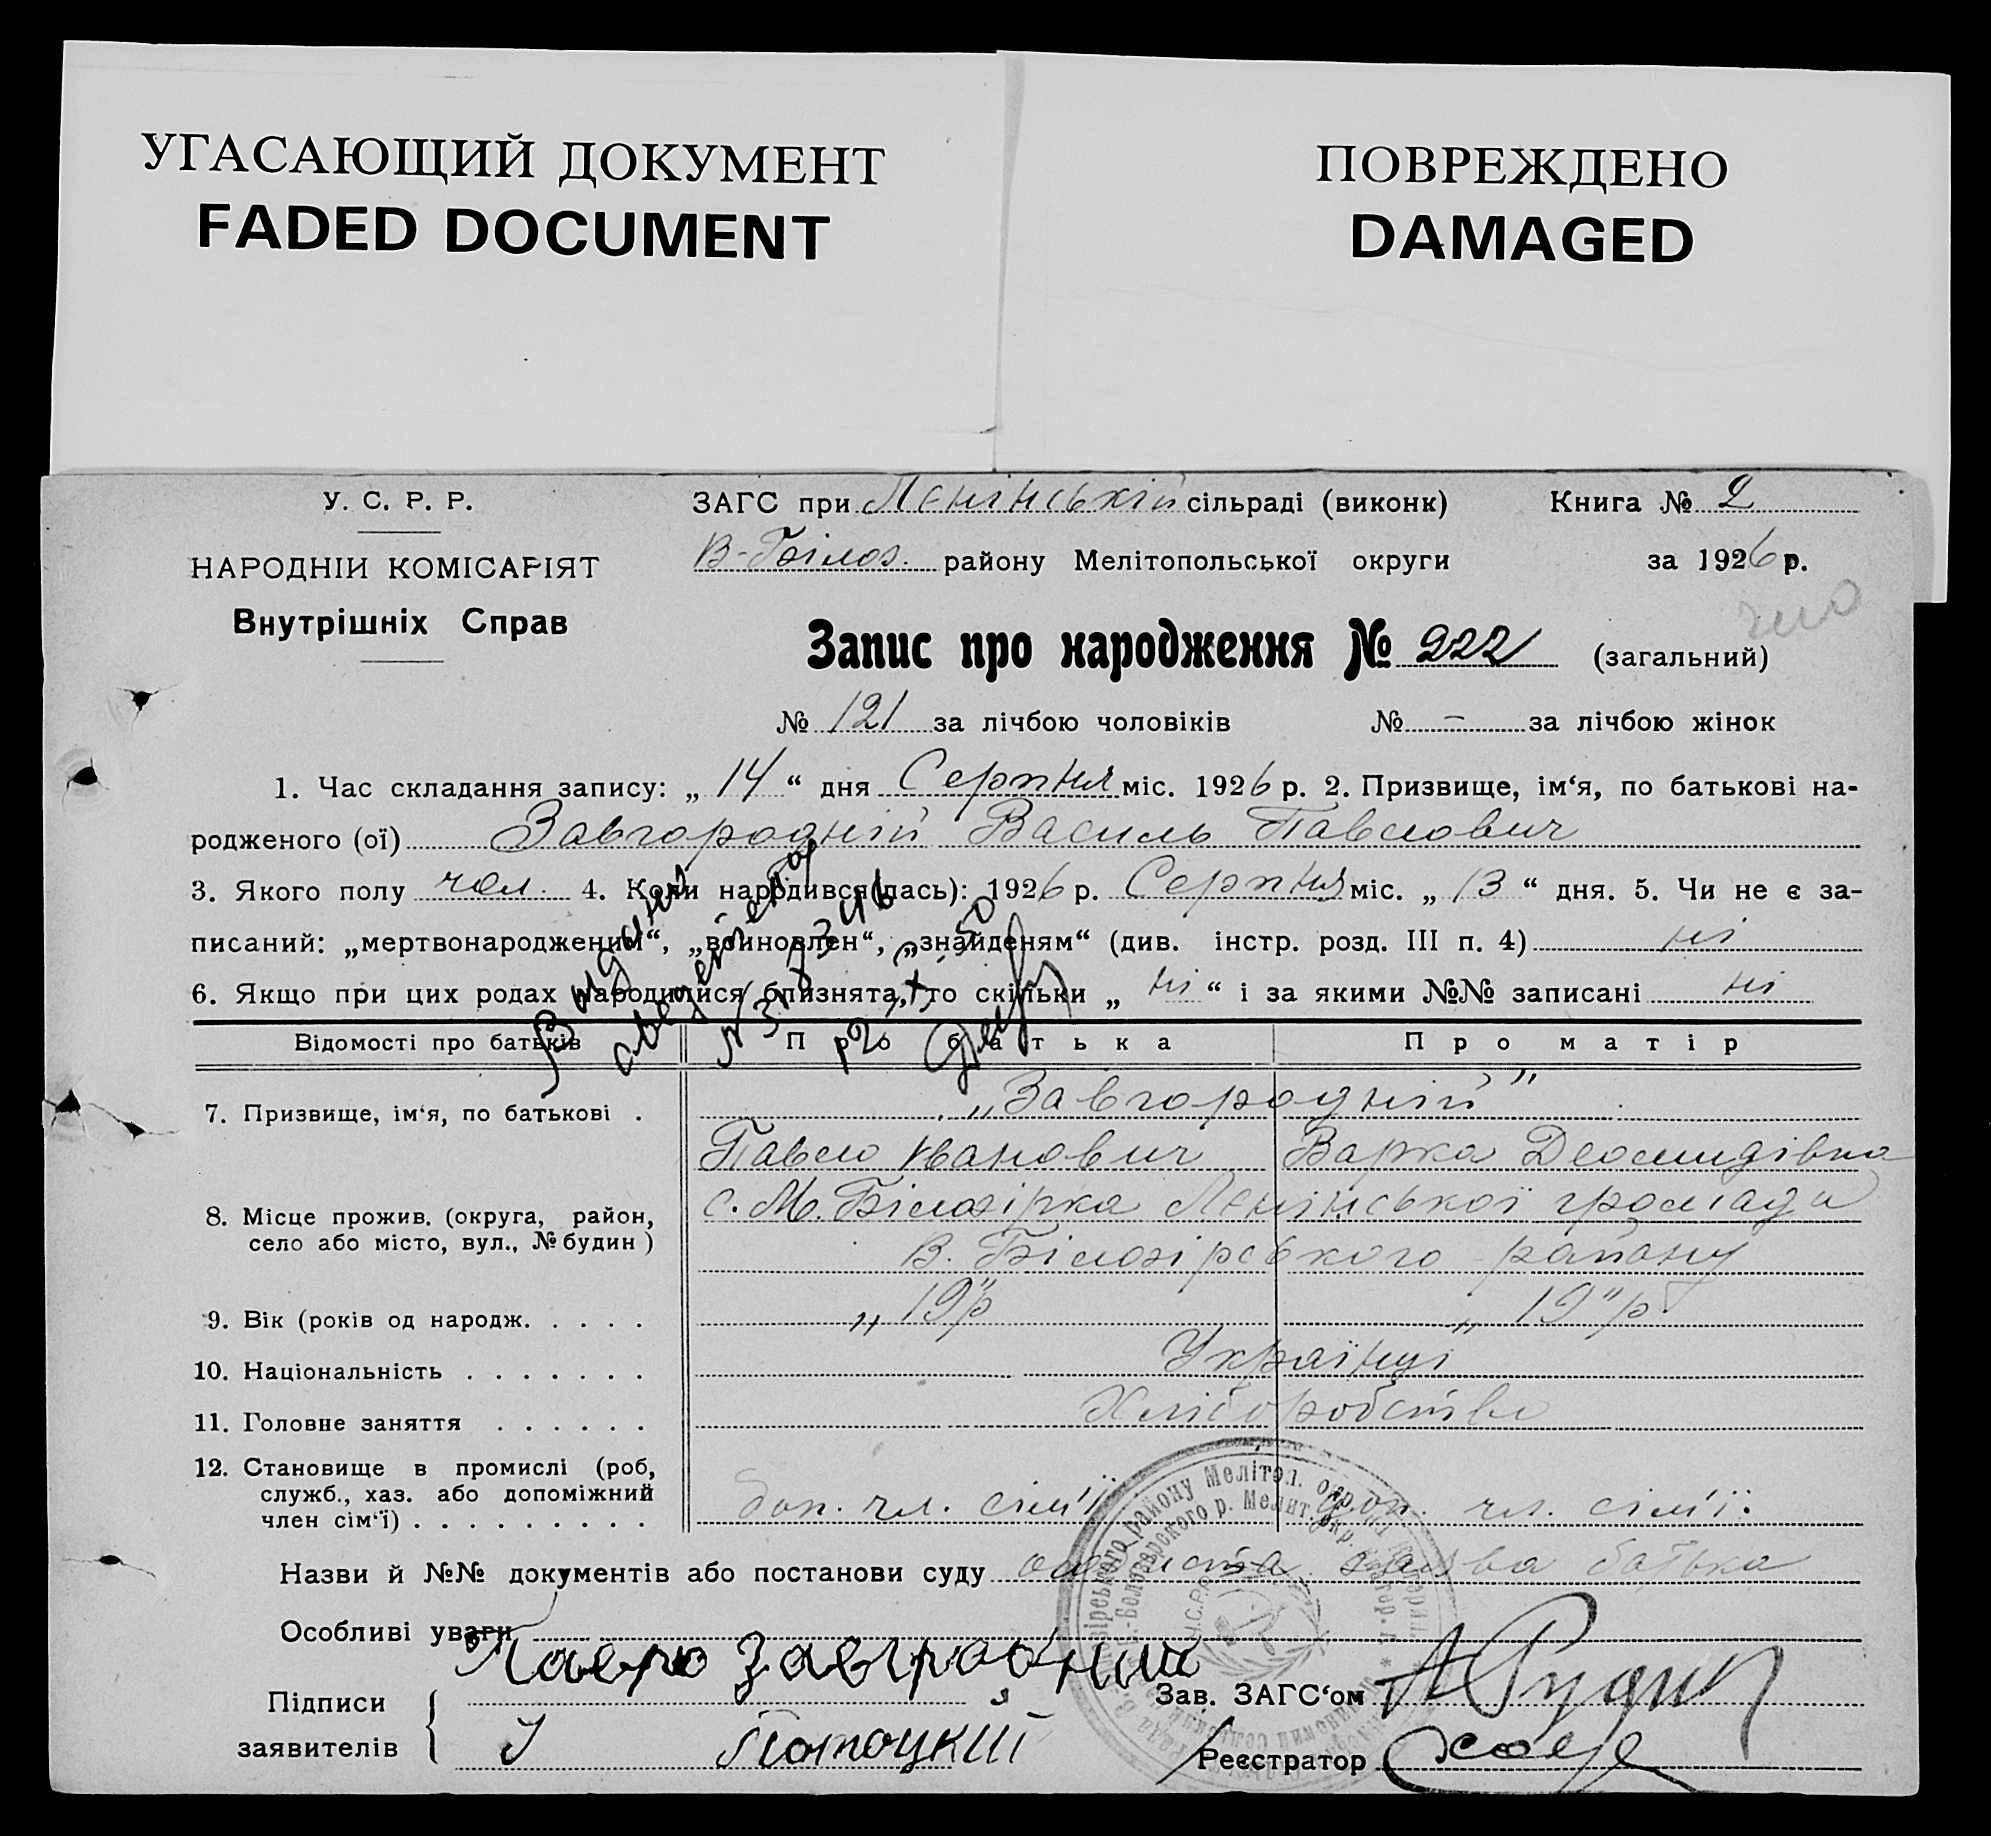 УГАСАЮЩИЙ ДОКУМЕНТ
FADED DOCUMENT
ПОВРЕЖДЕНО
DAMAGED
У. С. Р. Р.
НАРОДНІЙ КОМІСАРІЯТ
Внутрішніх Справ
ЗАГС при Ленінській сільраді (виконк)
В-Білоз. району Мелітопольської округи
Книга № 2
за 1926 р.
Запис про народження № 222 (загальний)
№ 121 за лічбою чоловіків № - за лічбою жінок
1. Час складання запису: „ 14 “ дня Серпня міс. 1926 р. 2. Призвище, ім‘я, по батькові на-
родженого (ої) Завгородній Василь Павлович
3. Якого полу чол. 4. Коли народився (лась): 1926 р. Серпня міс. „ 13 “ дня. 5. Чи не є за-
писаний: „мертвонародженим“, „знайденям“ (див. інстр. розд. III п. 4) ні
6. Якщо при цих родах народилися близнята, то скільки „ ні “ і за якими №№ записані ні
Видано
Відомості про батьків Про батька Про матір
7. Призвище, ім‘я, по батькові . „Завгородній”
Павло Іванович Варка Деомидівна
8. Місце прожив. (округа, район,
село або місто, вул., № будин)
с. М. Білозірка Ленінської громади
В. Білозірського району
9. Вік (років од народж. . . . . „19”р „19”р
10. Національність . . . . . . . Українці
11. Головне заняття . . . . . . Хліборобство
12. Становище в промислі (роб,
служб., хаз. або допоміжний
член сім‘ї) . . . . . . . . .
доп. чл. сім'ї доп. чл. сім'ї.
Назви й №№ документів або постанови суду особиста заява батька
Особливі уваги
Підписи
заявителів
Потоцкий
Зав. ЗАГС‘ом
Реєстратор